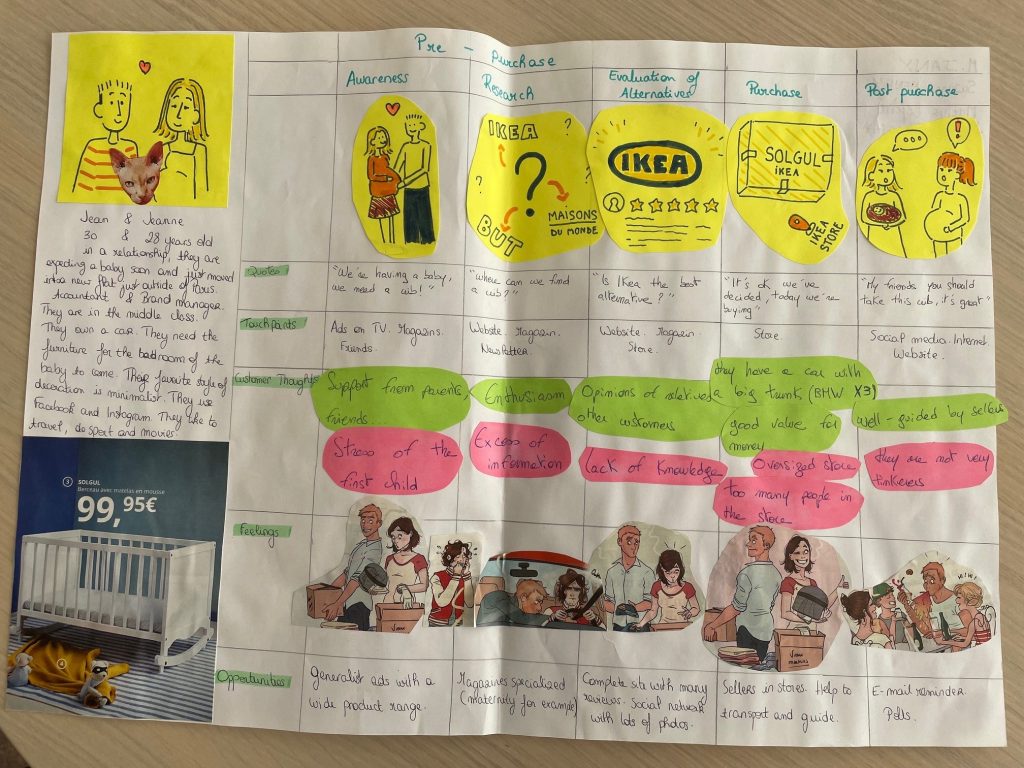 Pre - purchase
Awareness
Research
Evaluation of
Alternatives
Purchase
Post purchase
IKEA
?
?
?
?
BUT
MAISONS
DU MONDE
IKEA
SOLGUL
iKEA
IKEA
STORE
...
!
Jean & Jeanne
30 & 28 years old
in a relationship, they are
expecting a baby soon and just moved
into new flat just outside of Paris.
Accountant & Brand manager.
They are in the middle class.
They own a car. They need the
furniture for the bedroom of the
baby to come. Their favorite style of
decoration is minimalist. They use
Facebook and Instagram. They like to
travel, do sport and movies.
Quotes
"We're having a baby,
we need a crib!"
"where can we find
a crib?"
"Is Ikea the best
alternative?"
"It's ok we've
decided, today we're
buying"
"My friends you should
take this crib, it's great"
Touchpoints
Ads on TV. Magazins.
Friends.
Website. Magazin.
Newsletter.
Website. Magazin.
Store.
Store.
Social media. Internet.
Website.
Customer Thoughts
Support from parents,
friends...
Enthusiasm
Opinions of relatives
other customers
they have a car with
a big trunk (BMW X3)
good value for
money
well-guided by sellers
Stress of the
first child
Excess of
information
lack of knowledge
Oversized store
too many people in
the store
they are not very
tinkerers
Feelings
Opportunities
Generalist ads with a
wide product range.
Magazines specialized
(maternity for example)
Complete site with many
reviews. Social network
with lots of photos.
Sellers in stores. Help to
transport and guide.
E-mail reminder.
Polls.
3 SOLGUL
Berceau avec matelas en mousse
99,95€
4